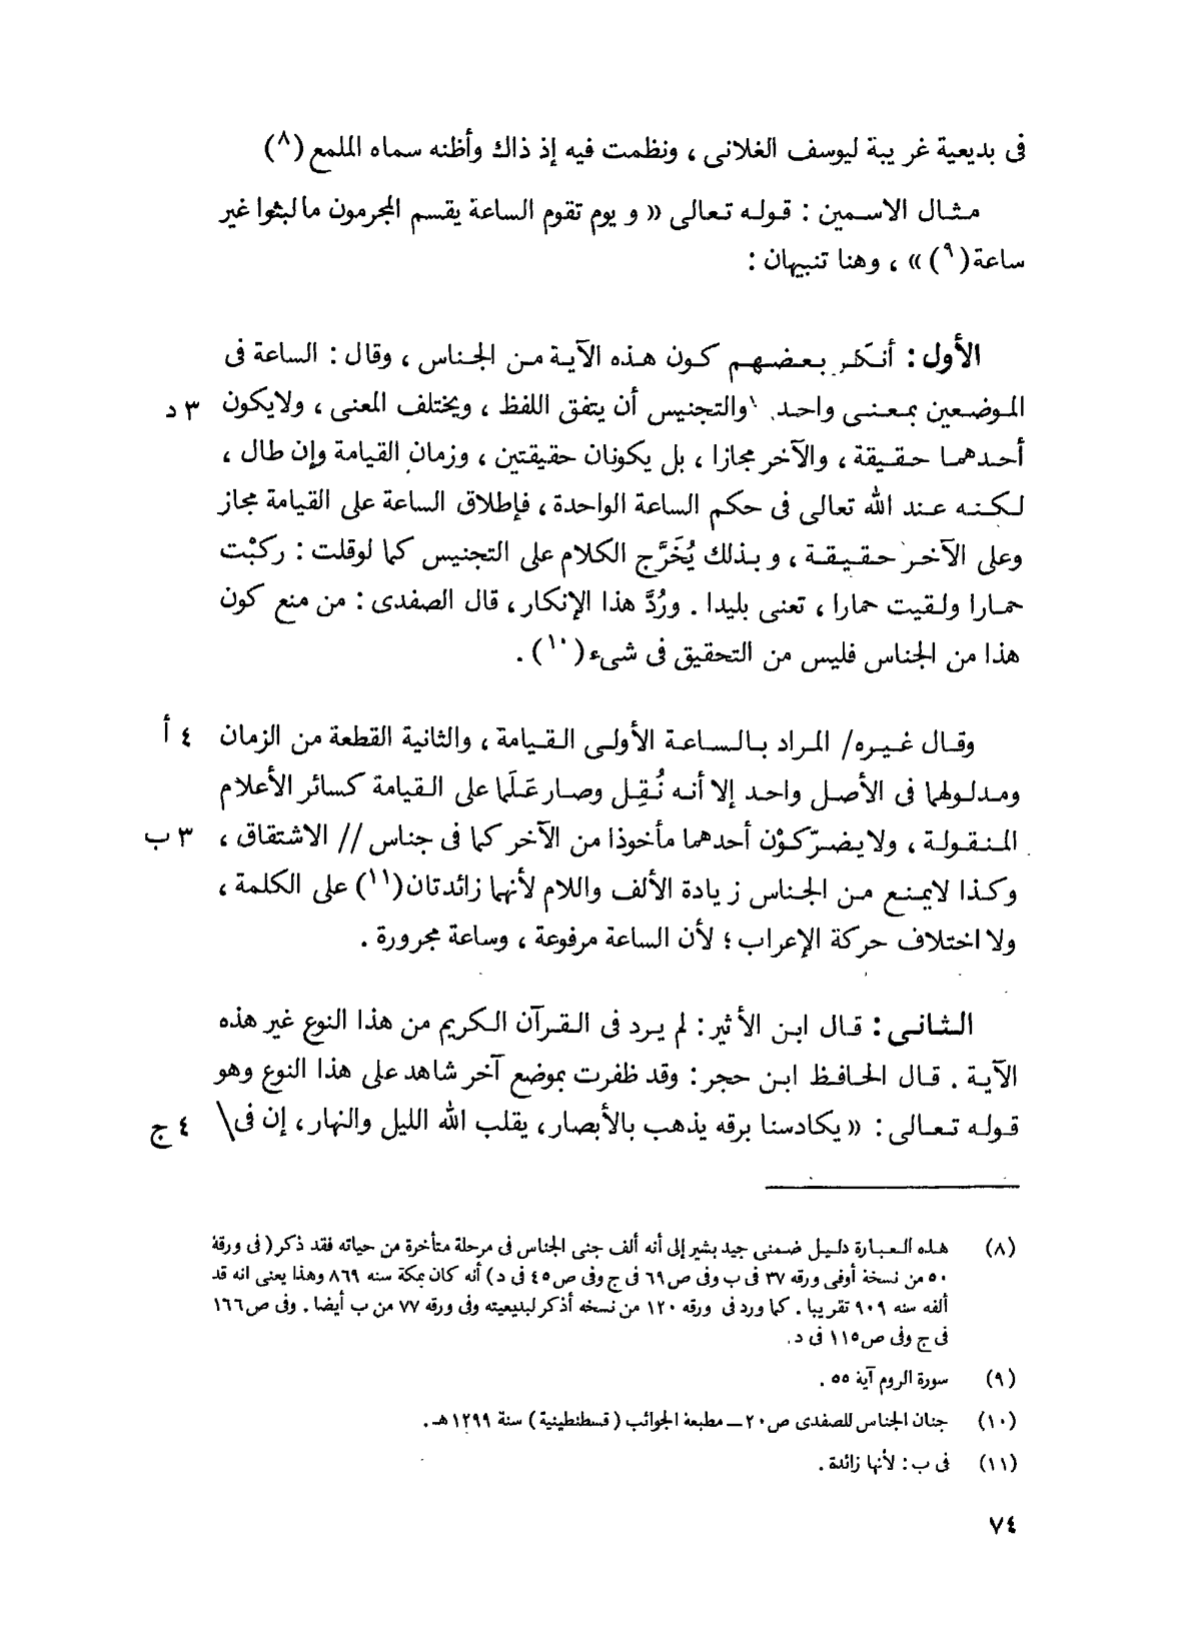 فى بديعية غريبة ليوسف الغلانى ، ونظمت فيه إذ ذاك وأظنه سماه الملمع (٨)
مثال الاسمين : قوله تعالى « و يوم تقوم الساعة يقسم المجرمون مالبثوا غير
ساعة (٩) » ، وهنا تنبيهان :
الأول : أنكر بعضهم كون هذه الآية من الجناس ، وقال : الساعة فى
الموضعين بمعنى واحد \ والتجنيس أن يتفق اللفظ ، ويختلف المعنى ، ولايكون ٣ د
أحدهما حقيقة ، والآخر مجازا ، بل يكونان حقيقتين ، وزمان القيامة وإن طال ،
لكنه عند الله تعالى فى حكم الساعة الواحدة ، فإطلاق الساعة على القيامة مجاز
وعلى الآخر حقيقة ، و بذلك يُخَرَّج الكلام على التجنيس كما لوقلت : ركبْت
حمارا ولقيت حمارا ، تعنى بليدا . ورُدَّ هذا الإنكار ، قال الصفدى : من منع كون
هذا من الجناس فليس من التحقيق فى شىء (١٠) .
وقال غيره/ المراد بالساعة الأولى القيامة ، والثانية القطعة من الزمان ٤ أ
ومدلولها فى الأصل واحد إلا أنه نُقِل وصار عَلَما على القيامة كسائر الأعلام
المنقولة ، ولا يضرّ كوْن أحدهما مأخوذا من الآخر كما فى جناس // الاشتقاق ، ٣ ب
وكذا لايمنع من الجناس زيادة الألف واللام لأنها زائدتان (١١) على الكلمة ،
ولا اختلاف حركة الإعراب ؛ لأن الساعة مرفوعة ، وساعة مجرورة .
الثانى : قال ابن الأثير : لم يرد فى القرآن الكريم من هذا النوع غير هذه
الآية . قال الحافظ ابن حجر : وقد ظفرت بموضع آخر شاهد على هذا النوع وهو
قوله تعالى : « يكادسنا برقه يذهب بالأبصار ، يقلب الله الليل والنهار ، إن فى \ ٤ ج
(٨) هذه العبارة دليل ضمنى جيد يشير إلى أنه ألف جنى الجناس فى مرحلة متأخرة من حياته فقد ذكر ( فى ورقة
٥٠ من نسخة أوفى ورقه ٣٧ فى ب وفى ص ٦٩ فى ج وفى ص ٤٥ فى د ) أنه كان بمكة سنه ٨٦٩ وهذا يعنى انه قد
ألفه سنه ٩٠٩ تقريبا . كما ورد فى ورقه ١٢٠ من نسخه أذكر لبديعيته وفى ورقه ٧٧ من ب أيضا . وفى ص ١٦٦
فى ج وفى ص ١١٥ فى د .
(٩) سورة الروم آية ٥٥ .
(١٠) جنان الجناس للصفدى ص ٢٠ ــ مطبعة الجوائب ( قسطنطينية ) سنة ١٢٩٩ هـ .
(١١) فى ب : لأنها زائدة .
٧٤